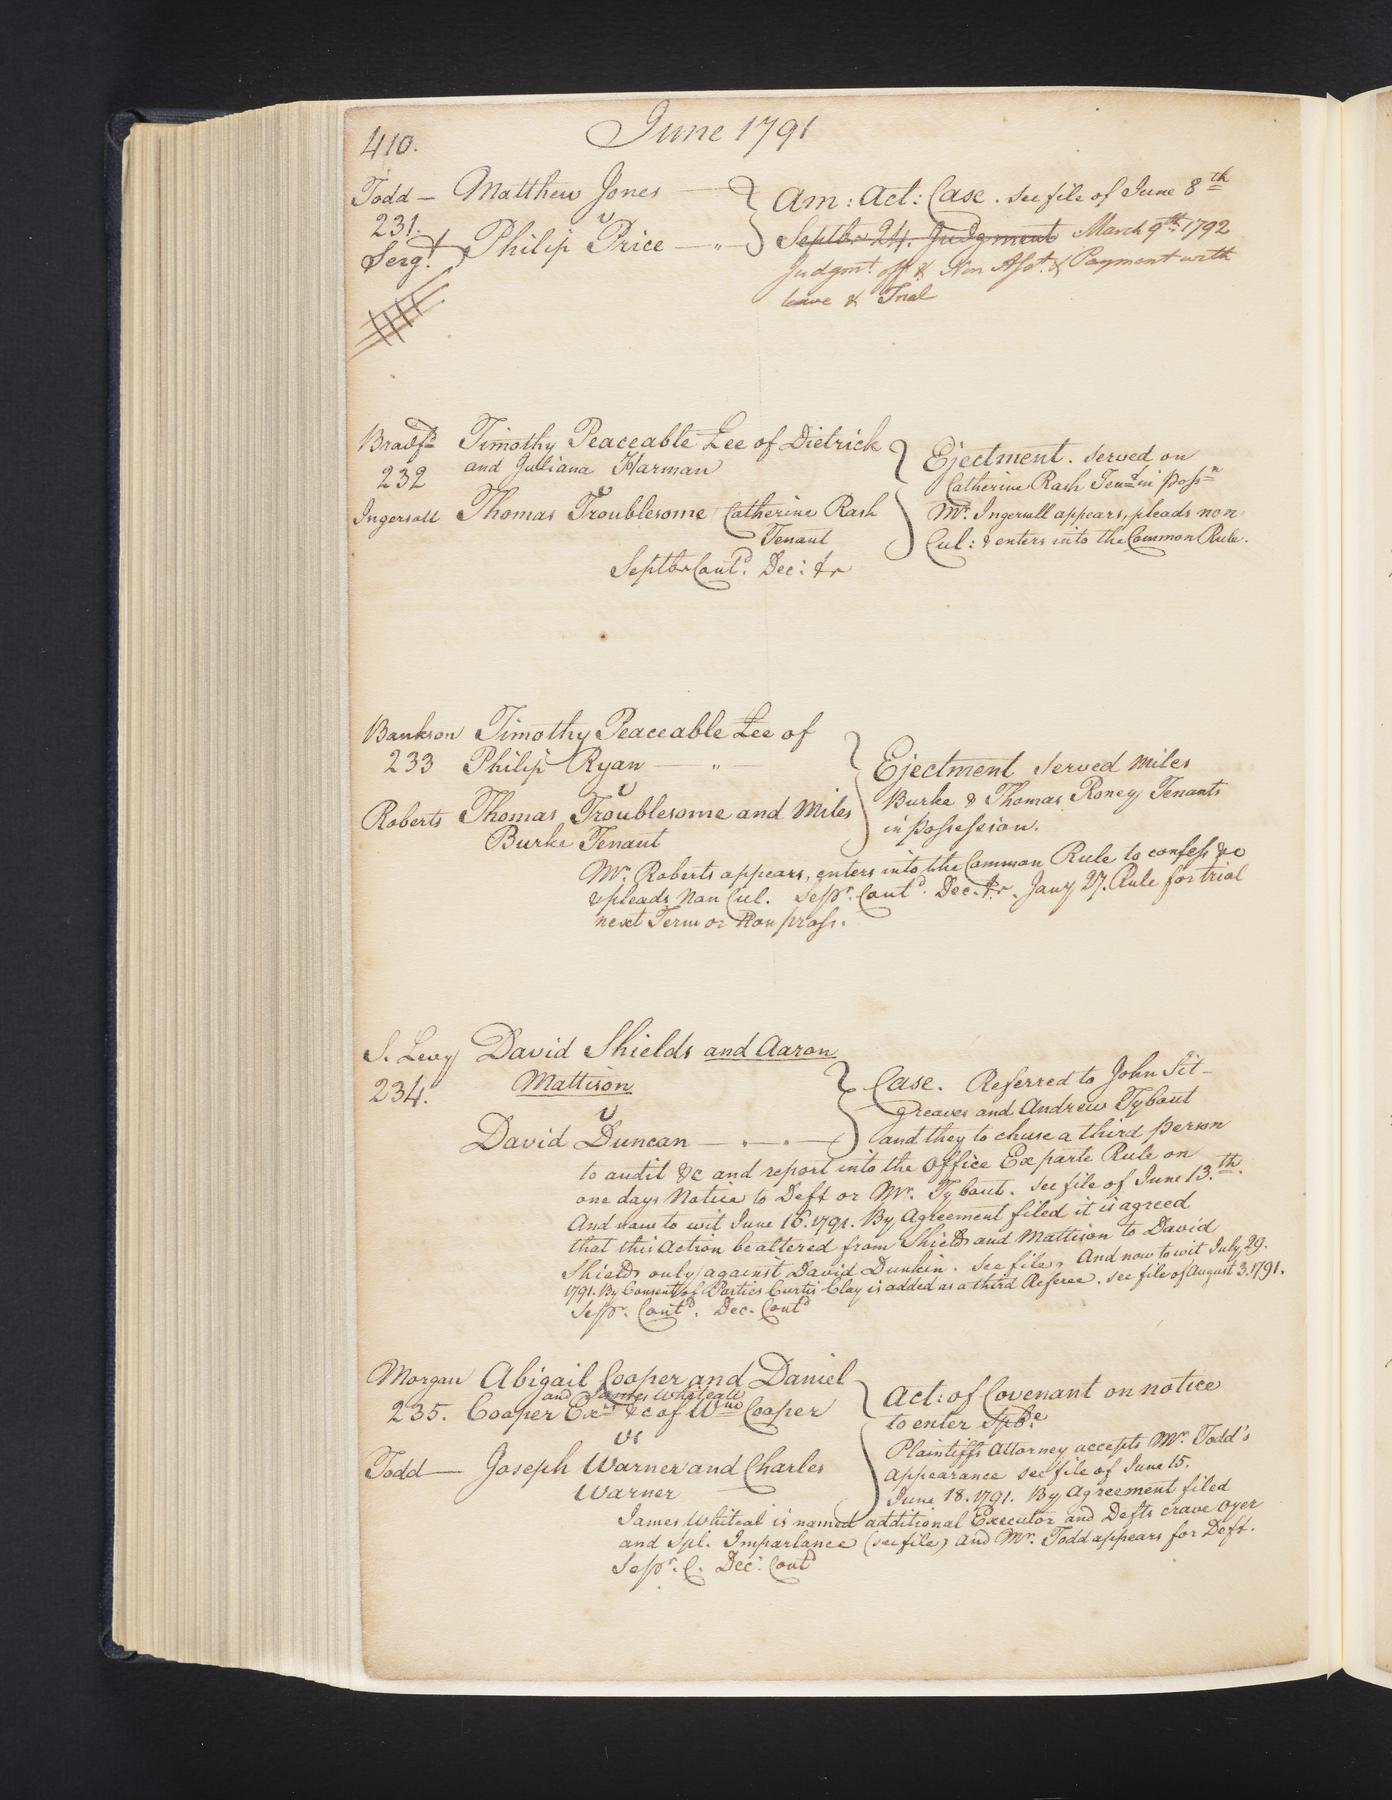 410.
June 1791
Todd — Matthew Jones
231. v
Serg.t Philip Price — „ —
Am: Act: Case. see file of June 8th
Septbr 24. Judgment March 9th 1792
Judgmt. off & Non Asst. & Payment with
leave & Trial
Bradfd Timothy Peaceable Lee of Dietrick
232 and Juliana Harman
v
Ingersoll Thomas Troublesome Catherine Rash
Tenant
Septbr Contd. Dec:
Ejectment. served on
Catherine Rash Tent in Possn
Mr. Ingersoll appears, pleads non
Cul: & enters into the Common Rule.
Bankson Timothy Peaceable Lee of
233 Philip Ryan — „ —
v
Roberts Thomas Troublesome and Miles
Burke Tenant
Ejectment served Miles
Burke & Thomas Roney Tenants
in possession.
Mr. Roberts appears, enters into the Common Rule to confess &c
& pleads Non Cul. Sepr. Contd. Dec. Jany 27. Rule for trial
next Term or Non pross.
S. Levy David Shields and Aaron
234. Mattison
v
David Duncan — . — . —
Case. Referred to John Sit-
greaves and Andrew Tybout
and they to chuse a third person
to audit &c and report into the Office Ex parte Rule on
one days Notice to Deft or Mr. Tybout. see file of June 13.th.
And now to wit June 16. 1791. By Agreement filed it is agreed
that this Action be altered from Shields and Mattison to David
Shields only against David Dunkin. see file, And now to wit July 29.
1791. By Consent of Parties Curtis Clay is added as a third Referee. see file of August 3. 1791.
Sepr. Contd. Dec. Contd
Morgan Abigail Cooper and Daniel
and James Whiteall
235. Cooper Exrs &c of Wm Cooper
vs
Todd — Joseph Warner and Charles
Warner
Act: of Covenant on notice
to enter Spbe
Plaintiffs Attorney accepts Mr. Todd's
appearance see file of June 15.
June 18. 1791. By Agreement filed
James Whiteal is named additional Executor and Defts crave Oyer
and Spl. Imparlance (see file) and Mr. Todd appears for Deft.
Sepr. C. Dec: Contd